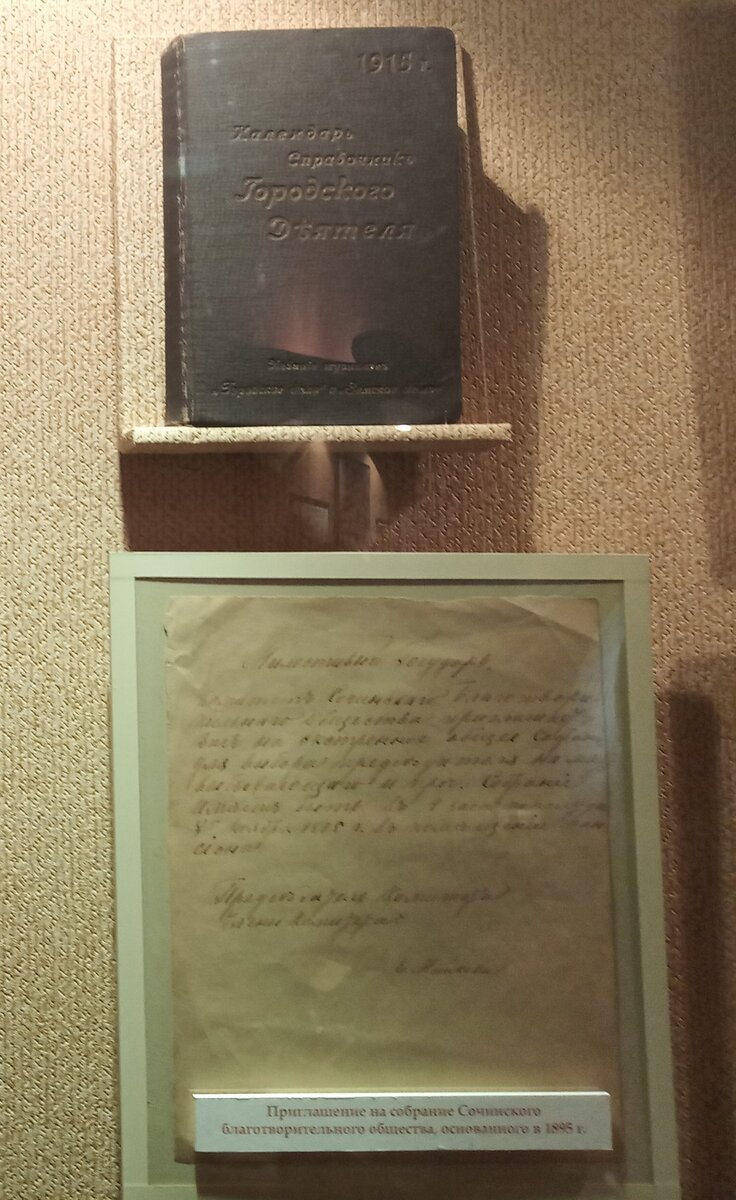 1915 г.
Календарь
Справочникъ
Городского
Дѣятеля
Изданіе журналовъ
„Городское дѣло“ и „Земское дѣло“
Милостивый Государь,
Комитетъ Сочинскаго Благотвори
тельнаго Общества приглашаетъ
Васъ на экстренное общее Собраніе
для выбора председателя на место
выбывающаго и проч. Собраніе
имѣетъ быть въ
г. въ помещеніи
Председатель Комитета
Члены Комитета
Приглашение на собрание Сочинского
благотворительного общества, основанного в 1895 г.